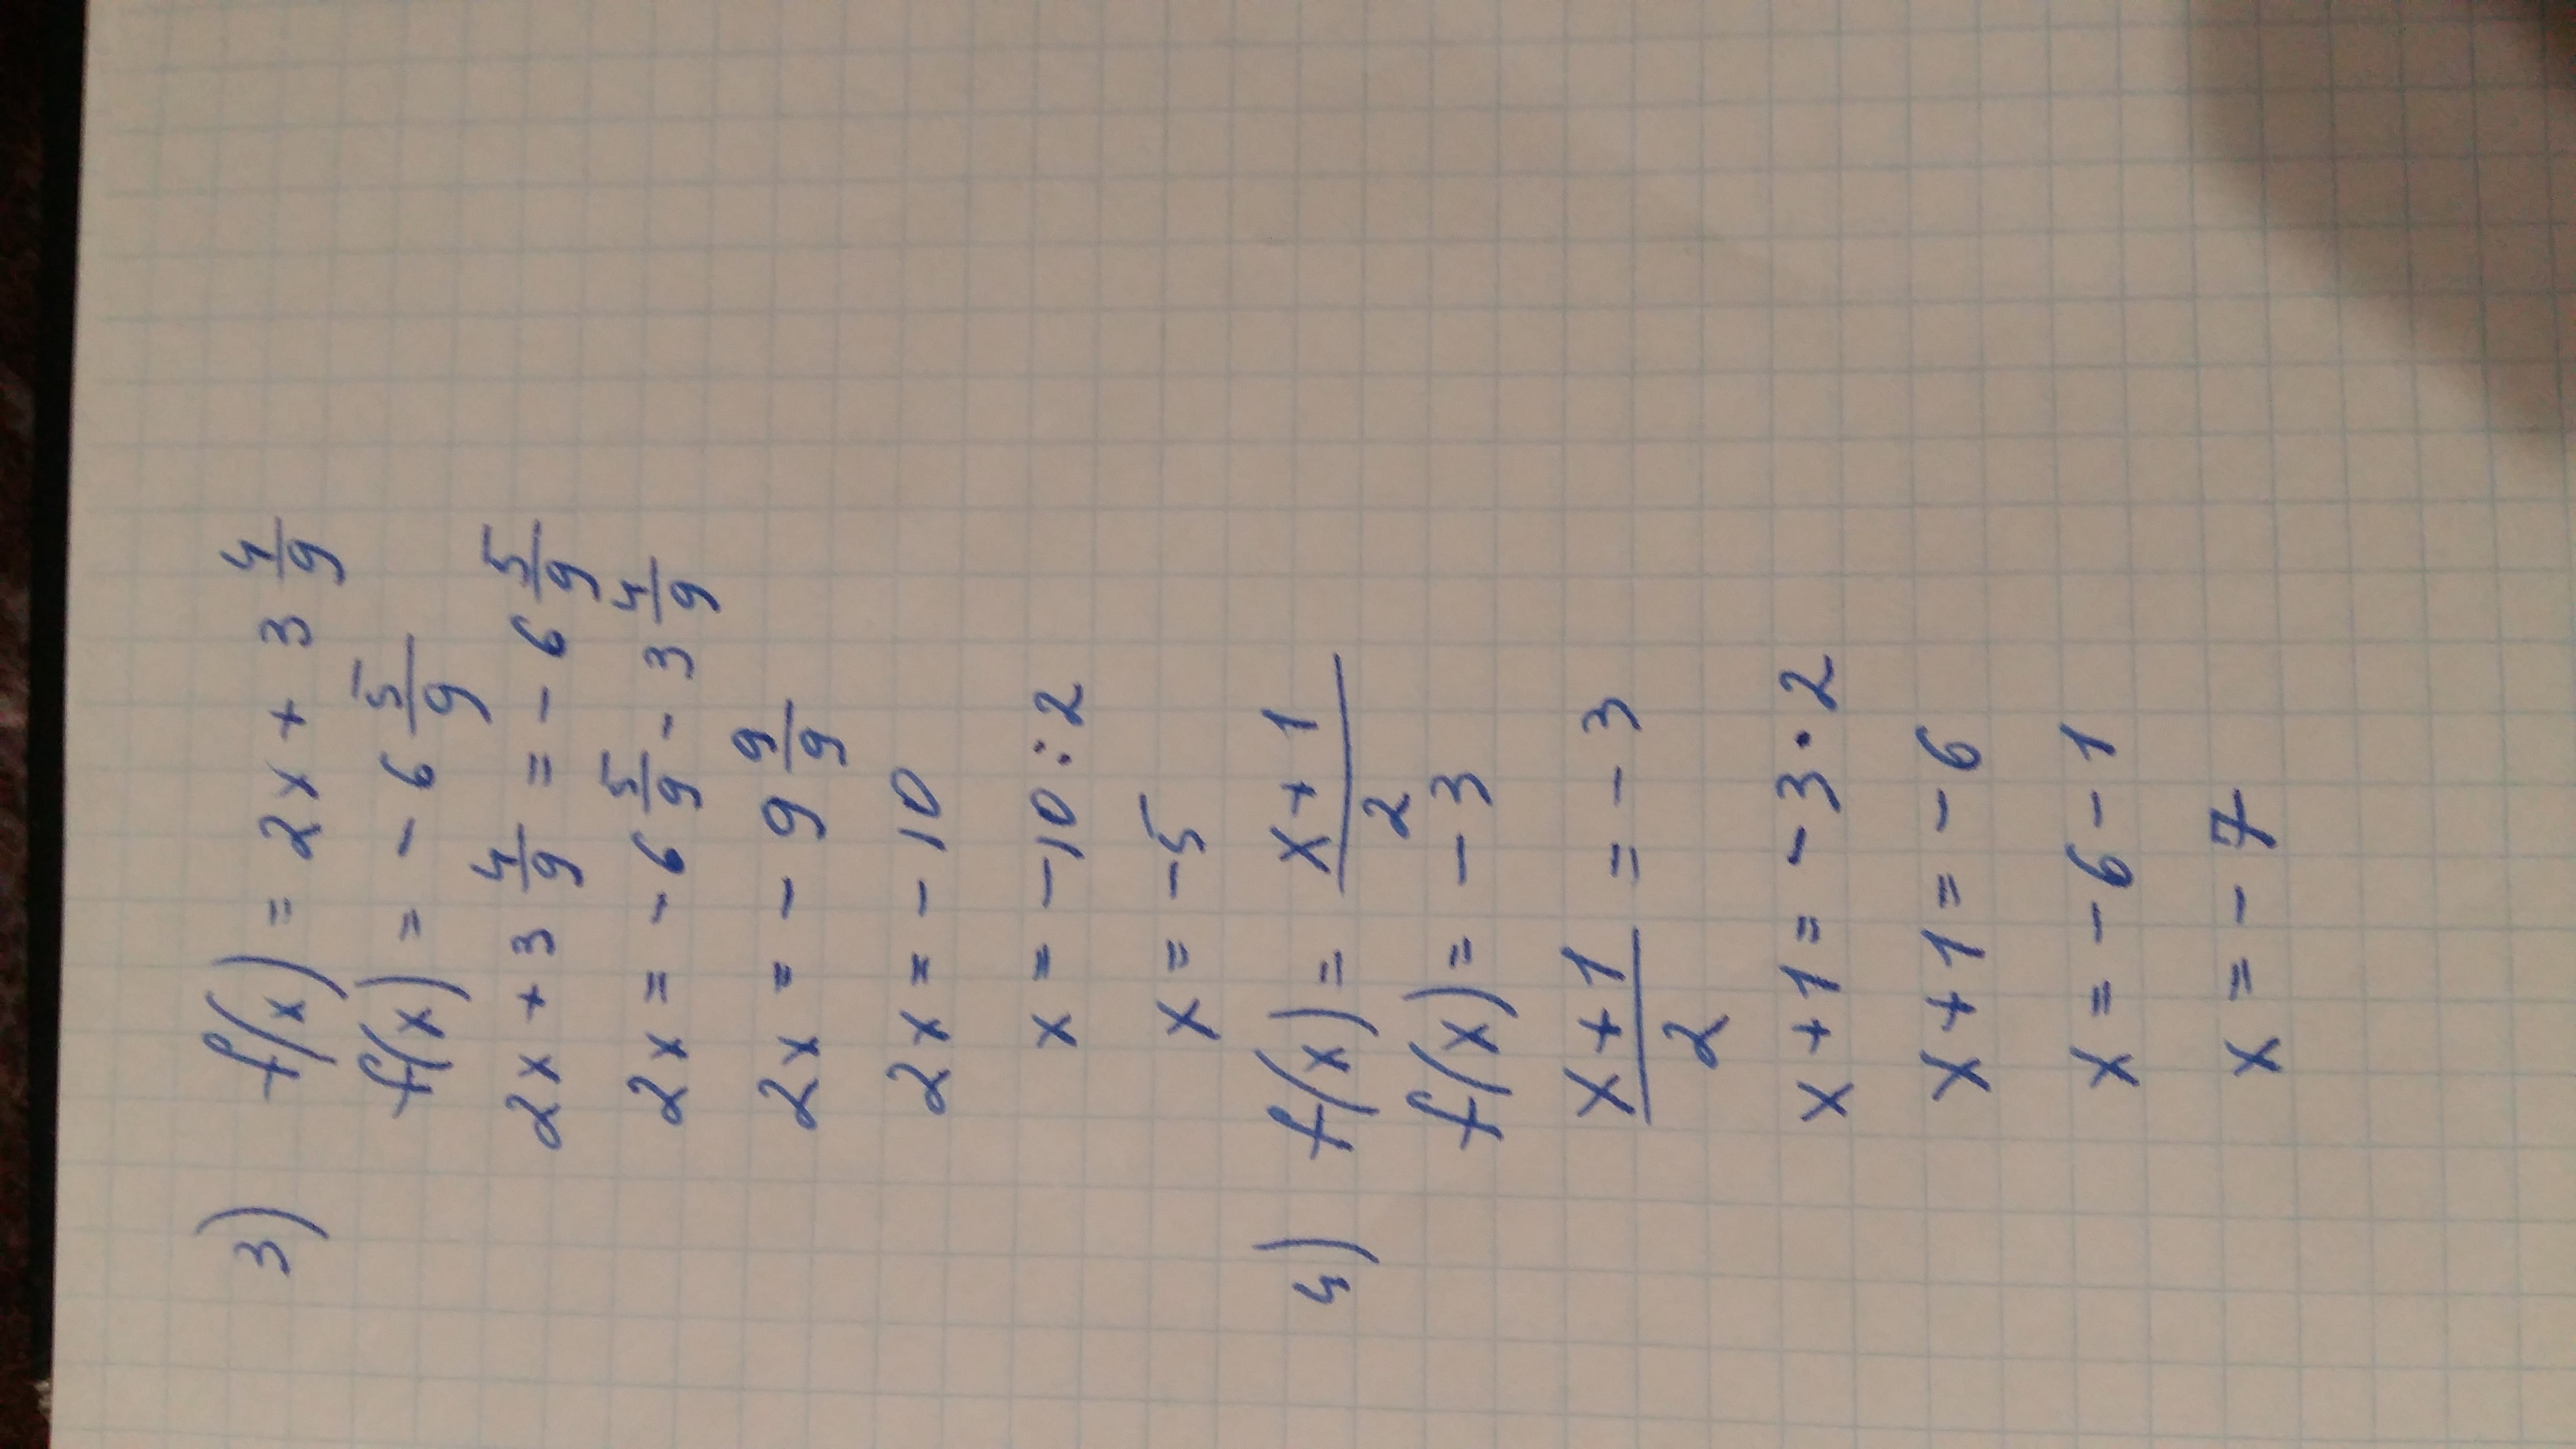 3) f(x) = 2x + 3 4/9
f(x) = - 6 5/9
2x + 3 4/9 = - 6 5/9
2x = - 6 5/9 - 3 4/9
2x = - 9 9/9
2x = - 10
x = -10 : 2
x = -5
4) f(x) = (x + 1)/2
f(x) = - 3
(x + 1)/2 = - 3
x + 1 = - 3 · 2
x + 1 = - 6
x = - 6 - 1
x = - 7